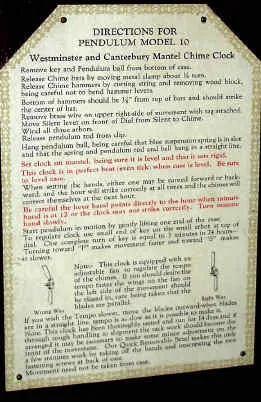 DIRECTIONS FOR
PENDULUM MODEL 10
Westminster and Canterbury Mantel Chime Clock
Remove key and Pendulum ball from bottom of case.
Release Chime bars by moving metal clamp about ¼ turn.
Release Chime hammers by cutting string and removing wood block,
being careful not to bend hammer levers
Bottom of hammers should be from top of bars and should strike
the center of bar.
Remove brass wire on upper rightside of movement with tag attached.
Move Silent lever on front of Dial from Silent to Chime.
Wind all three arbors.
Release pendulum rod from slip.
Hang pendulum ball, being careful that blue suspension spring is in slot
and that the spring and pendulum rod and ball hang in a straight line.
Set clock on mantel, being sure it is level and that is sets rigid.
This clock is in perfect beat (even tick) when case is level. Be sure
to level case.
When setting the hands, either one may be moved forward or back-
ward, and the hour will strike correctly at all times and the chimes will
correct themselves at the next hour.
Be careful the hour hand points directly to the hour when minute
hand is at 12 or the clock may not strike correctly. Turn minute
hand slowly.
Start pendulum in motion by gently lifting one end of the case.
To regulate clock use small end of key on the small arbor at top of
dial. One complete turn of key is equal to 3 minutes in 24 hours
Turning toward "F" makes movement faster and toward "S" makes
it slower.
Note: This clock is equipped with an
adjustable fan to regulate the tempo
of the chimes. If you should desire the
tempo faster the wings on the fan on
the left side of the movement should
be closed in, care being taken that the
blades are parallel.
Wrong Way
Right Way
If you wish the Tempo slower, move the blades outward when blades
are in a straight line, tempo is as slow as it is possible to make it.
Note: This clock has been thoroughly tested and run for 14 days and if
through rough handling in shipment the rack work should become
arranged it may be necessary to make some minor adjustments on the
front of the movement. Our Quick Removable Bezel makes this only
a few minutes work by taking off the hands and unscrewing the two
fastening screws at back of case.
Movement need not be taken from case.